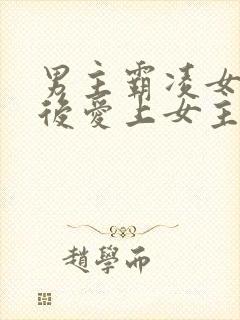 男主霸凌女
後愛上女主
趙學而